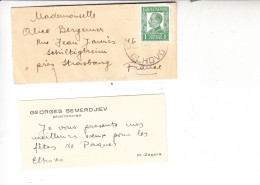 Mademoiselle
Alice Bergemer
Rue Jean Jaurès
Schiltigheim
près Strasbourg
France
ELHOVO
GEORGES SEMERDJIEV
Je vous présente mes
meilleurs vœux pour les
fêtes de Pâques
Elhovo
St. Zagora